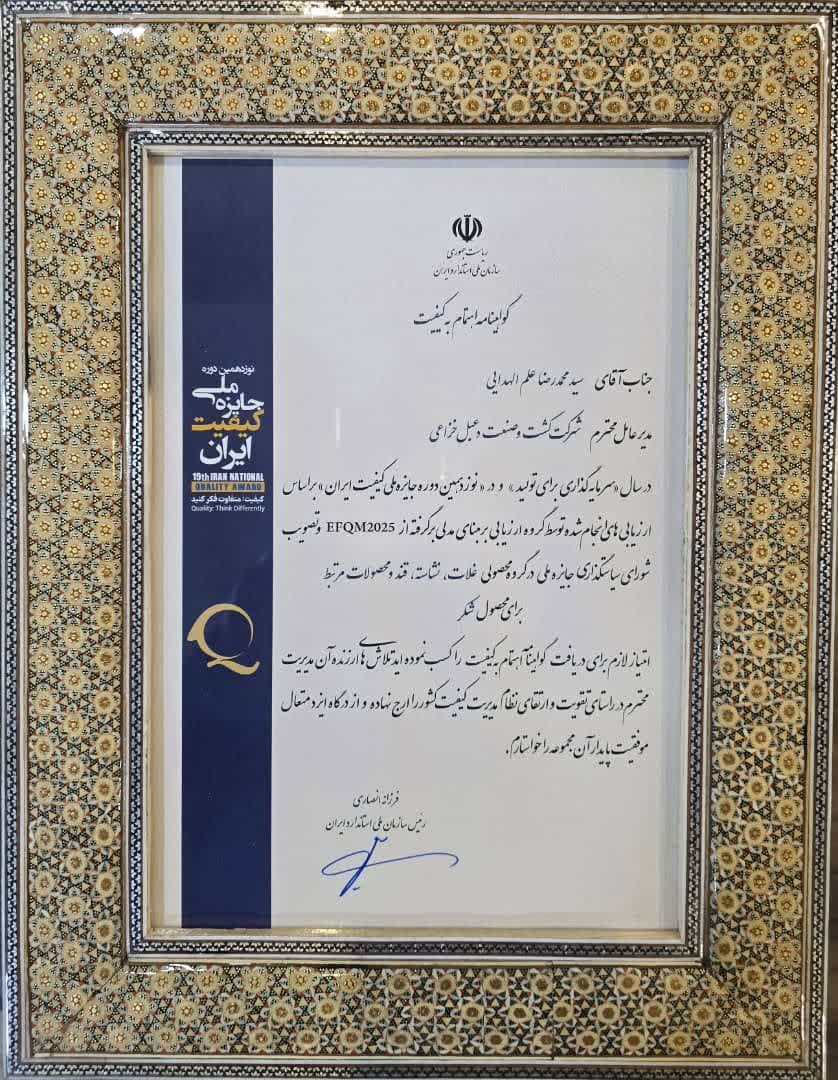 ریاست جمهوری
سازمان ملی استاندارد ایران
گواهینامه اهتمام به کیفیت
جناب آقای سید محمدرضا علم الهدایی
مدیر عامل محترم شرکت کشت و صنعت دعبل خزاعی
در سال «سرمایه گذاری برای تولید» و در «نوزدهمین دوره جایزه ملی کیفیت ایران» بر اساس
ارزیابی های انجام شده توسط گروه ارزیابی بر مبنای مدلی برگرفته از EFQM2025 و تصویب
شورای سیاستگذاری جایزه ملی در گروه محصولی غلات، نشاسته، قند و محصولات مرتبط
برای محصول شکر
امتیاز لازم برای دریافت گواهینامه اهتمام به کیفیت را کسب نموده اید تلاش های ارزنده آن مدیریت
محترم در راستای تقویت و ارتقای نظام مدیریت کیفیت کشور را ارج نهاده و از درگاه ایزد متعال
موفقیت پایدار آن مجموعه را خواستارم.
فرزانه انصاری
رئیس سازمان ملی استاندارد ایران
نوزدهمین دوره
جایزه ملی
کیفیت
ایران
19th IRAN NATIONAL
QUALITY AWARD
کیفیت؛ متفاوت فکر کنید
Quality: Think Differently